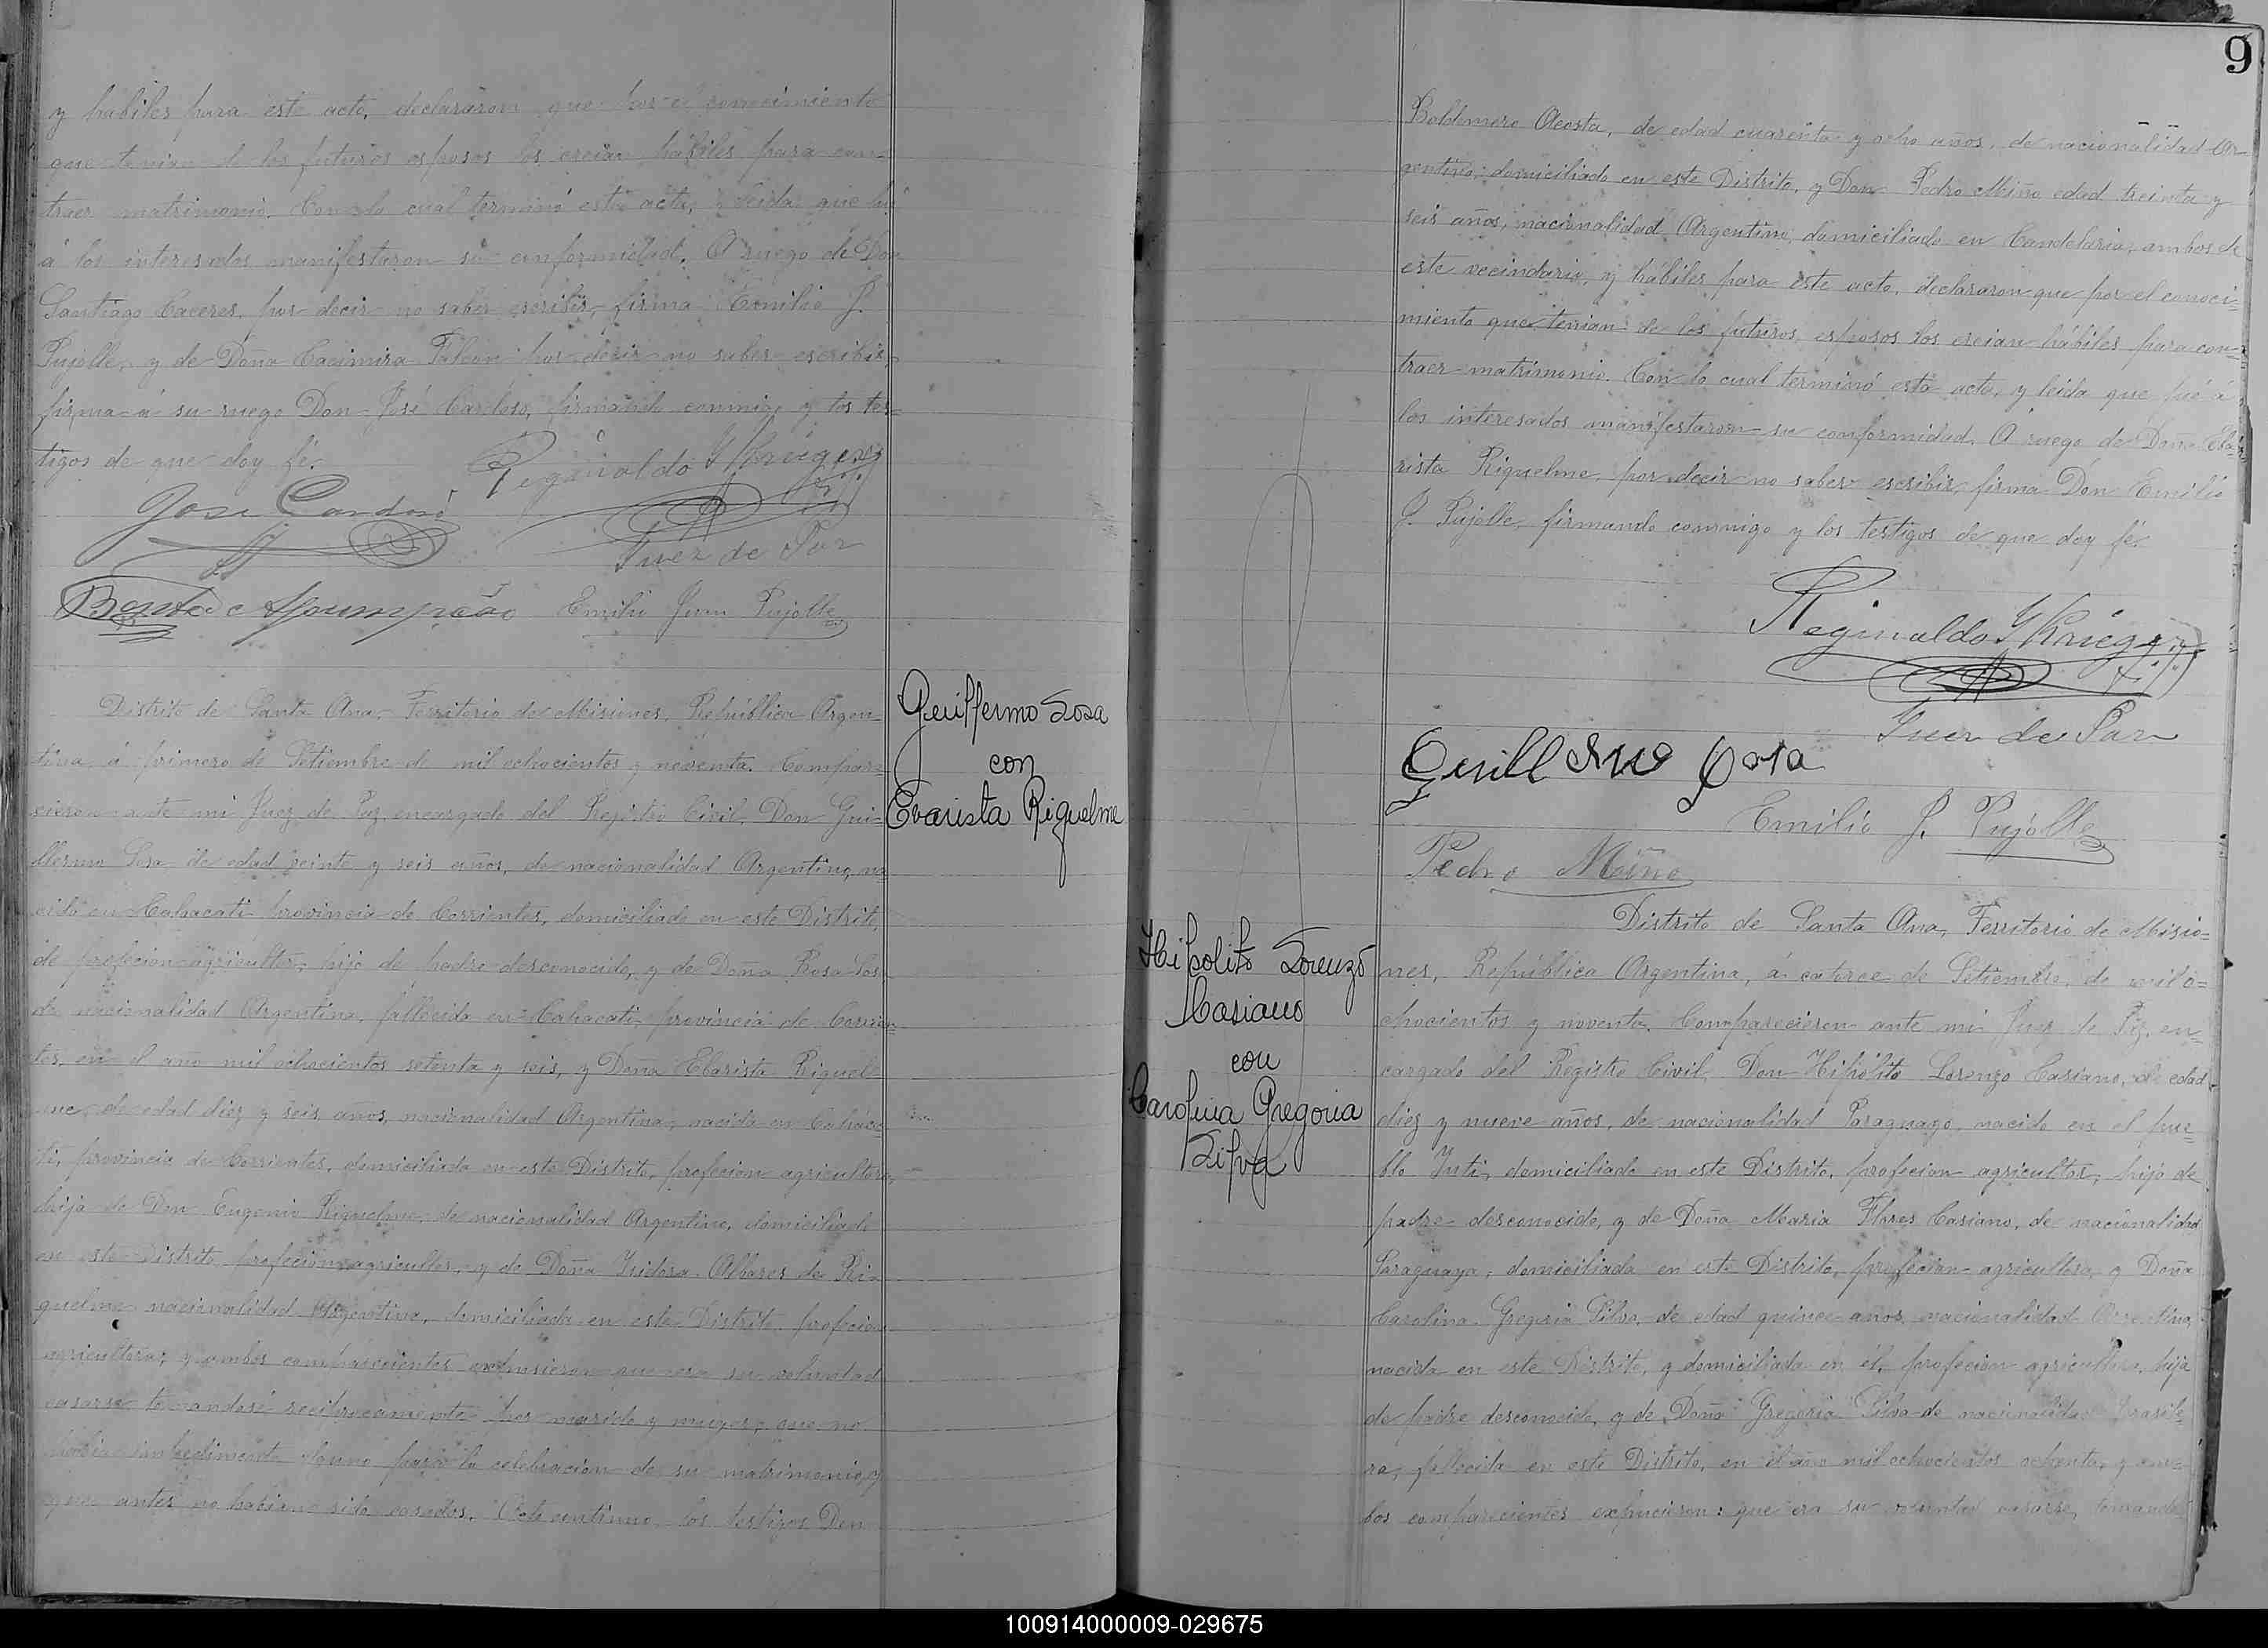 y habiles para este acto, declararon que por el conocimiento
que tenian de los futuros esposos los creian habiles para con-
traer matrimonio. Con lo cual terminó esta acta, y leida que fué
á los interesados manifestaron su conformidad. A ruego de Don
Santiago Caceres, por decir no saber escribir, firma Emilio J.
Pujolle, y de Doña Casimira Falcon por decir no saber escribir,
firma á su ruego Don José Cardoso, firmando conmigo y los tes-
tigos de que doy fé.
Reginaldo Krieger
Jose Cardoso
Juez de Paz
Bento de Assumpcão Emilio Juan Pujolle
Distrito de Santa Ana, Territorio de Misiones, República Argen-
tina á primero de Setiembre de mil ochocientos y noventa. Compare-
cieron ante mi Juez de Paz encargado del Registro Civil, Don Gui-
llermo Sosa de edad veinte y seis años, de nacionalidad Argentino, na-
cido en Cahacati provincia de Corrientes, domiciliado en este Distrito,
de profecion agricultor, hijo de padre desconocido, y de Doña Rosa Sosa
de nacionalidad Argentina, fallecida en Cahacati, provincia de Corrien-
tes, en el año mil ochocientos setenta y seis, y Doña Ebarista Riquel-
me, de edad diez y seis años, nacionalidad Argentina, nacida en Cahaca-
ti, provincia de Corrientes, domiciliada en este Distrito, profecion agricultora,
hija de Don Eugenio Riquelme, de nacionalidad Argentino, domiciliado
en este Distrito profecion agricultor, y de Doña Ysidora Albares de Ri-
quelme nacionalidad Argentina, domiciliada en este Distrito, profecion
agricultora; y ambos comparecientes expusieron que era su voluntad
casarse tomandose reciprocamente por marido y muger; que no
habia impedimento alguno para la celebracion de su matrimonio, y
que antes no habian sido casados. Acto continuo los testigos Don
Guillermo Sosa
con
Evarista Riquelme
9
Boldomero Acosta, de edad cuarenta y ocho años, de nacionalidad Ar-
gentino, domiciliado en este Distrito, y Don Pedro Miño edad treinta y
seis años, nacionalidad Argentino, domiciliado en Candelaria, ambos de
este vecindario, y hábiles para este acto, declararon que por el conoci-
miento que tenian de los futuros esposos los creian hábiles para con-
traer matrimonio. Con lo cual terminó esta acta, y leida que fué á
los interesados manifestaron su conformidad. A ruego de Doña Eba-
rista Riquelme, por decir no saber escribir, firma Don Emilio
J. Pujolle, firmando conmigo y los testigos de que doy fé.
Reginaldo Krieger
Juez de Paz
Guillermo Sosa
Emilio J. Pujolle
Pedro Miño
Hipolito Lorenzo
Casiano
con
Carolina Gregoria
Silva
Distrito de Santa Ana, Territorio de Misio-
nes, República Argentina, á catorce de Setiembre, de mil o-
chocientos y noventa. Comparecieron ante mi Juez de Paz, en-
cargado del Registro Civil, Don Hipólito Lorenzo Casiano, de edad
diez y nueve años, de nacionalidad Paraguayo, nacido en el pue-
blo Yuti, domiciliado en este Distrito, profecion agricultor, hijo de
padre desconocido, y de Doña Maria Flores Casiano, de nacionalidad
Paraguaya, domiciliada en este Distrito, profecion agricultora, y Doña
Carolina Gregoria Silva, de edad quince años, nacionalidad Argentina,
nacida en este Distrito, y domiciliada en él, profecion agricultora, hija
de padre desconocido, y de Doña Gregoria Silva de nacionalidad brasile-
ra, fallecida en este Distrito, en el año mil ochocientos ochenta, y am-
bos comparecientes expucieron: que era su voluntad casarse, tomando
100914000009-029675